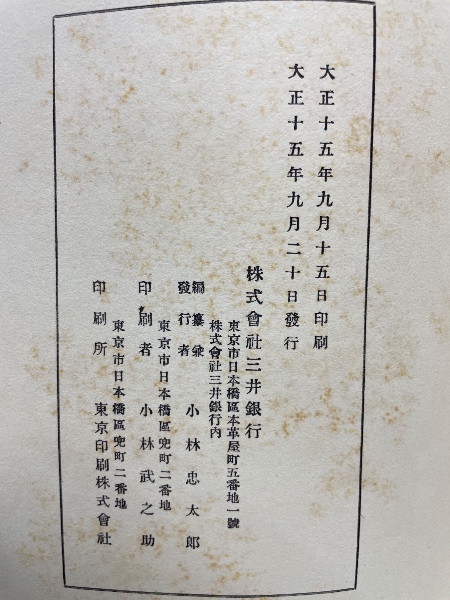 大正十五年九月十五日印刷
大正十五年九月二十日發行
株式會社三井銀行
東京市日本橋區本革屋町五番地一號
株式會社三井銀行內
編纂兼發行者 小林忠太郎
東京市日本橋區兜町二番地
印刷者 小林武之助
東京市日本橋區兜町二番地
印刷所 東京印刷株式會社